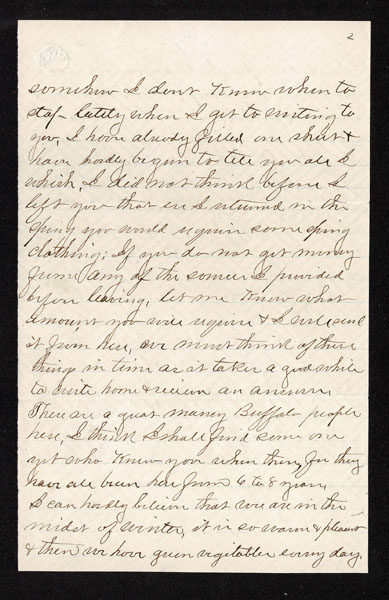 2
somehow I dont Know when to
stop - lately when I get to writing to
you, I have already filled one sheet &
have hardly begun to tell you all I
which, I did not think before I
left you that ere I returned in the
Spring you would require some spring
clothing; If you do not get money
from any of the sources I provided
before leaving, let me Know what
amount you will require & I will send
it from here, we must think of these
things in time as it takes a good while
to write home & receive an answer.
There are a great many Buffalo people
here, I think I shall find some one
yet who Knew you when there, for they
have all been here from 6 to 8 years,
I can hardly believe that we are in the
midst of winter, it is so warm & pleasant
& then we have green vegetables every day,